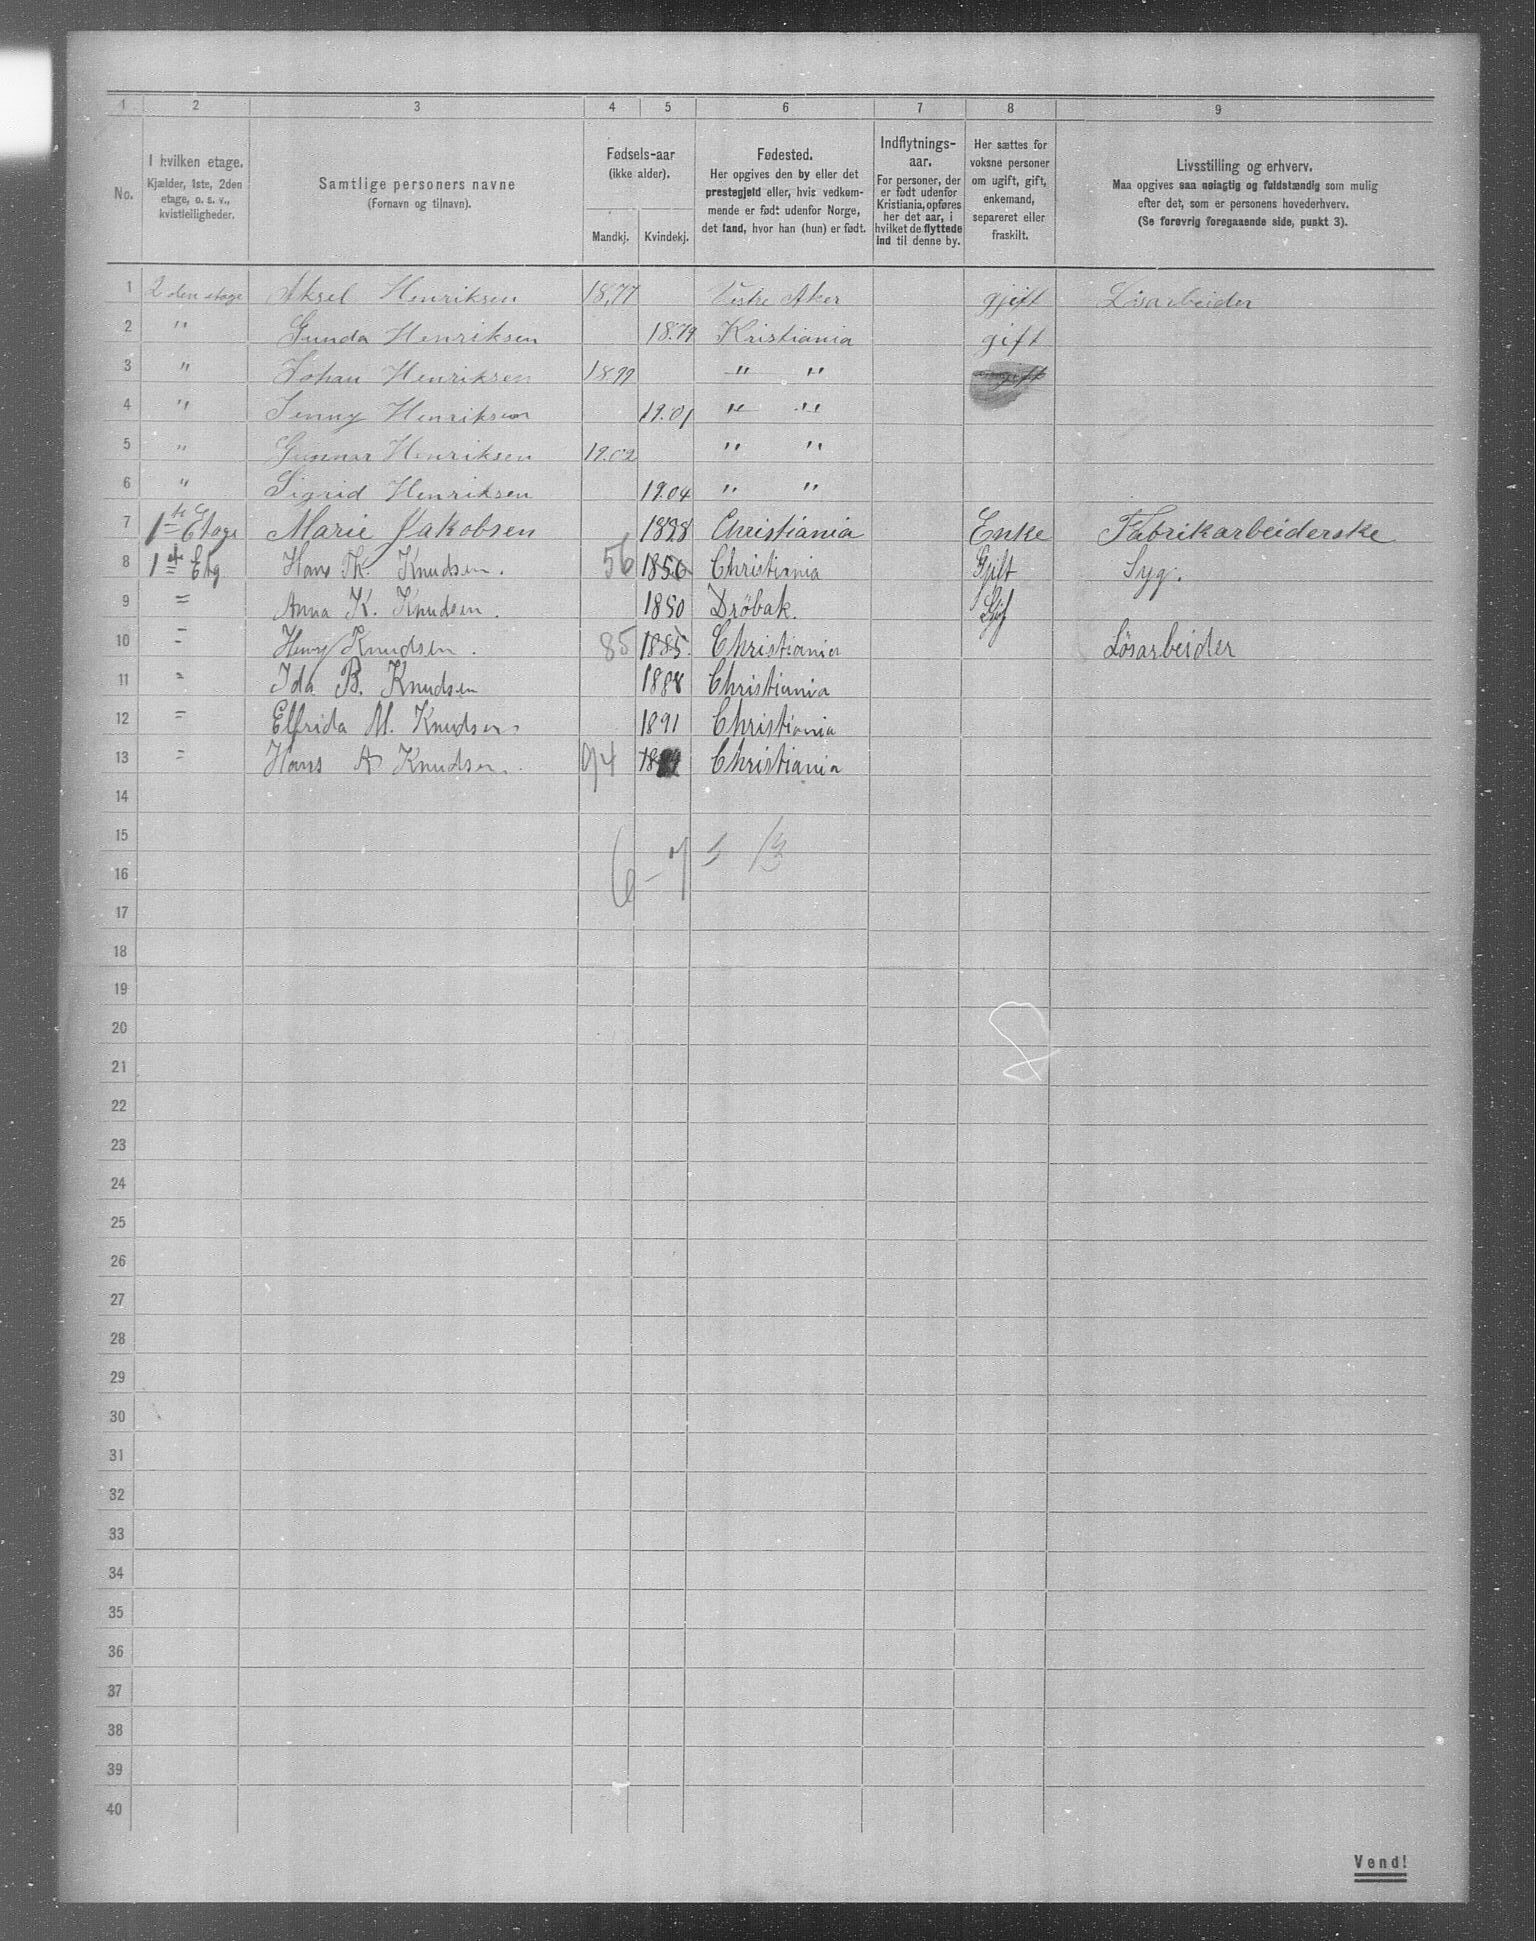 1 2 3 4 5 6 7 8 9
No.
I hvilken etage.
Kjælder, 1ste, 2den
etage, o. s. v.,
kvistleiligheder.
Samtlige personers navne
(Fornavn og tilnavn).
Fødsels-aar
(ikke alder).
Mandkj. Kvindekj.
Fødested.
Her opgives den by eller det
prestegjeld eller, hvis vedkom-
mende er født udenfor Norge,
det land, hvor han (hun) er født.
Indflytnings-
aar.
For personer, der
er født udenfor
Kristiania, opføres
her det aar, i
hvilket de flyttede
ind til denne by.
Her sættes for
voksne personer
om ugift, gift,
enkemand,
separeret eller
fraskilt.
Livsstilling og erhverv.
Maa opgives saa nøiagtig og fuldstændig som mulig
efter det, som er personens hovederhverv.
(Se forøvrig foregaaende side, punkt 3).
1 2den etage Aksel Henriksen 18,77 Vestre Aker gjift Lösarbeider
2 " Gunda Henriksen 18.79 Kristiania gift
3 " Johan Henriksen 18.99 " "
4 " Jenny Henriksen 19.01 " "
5 " Gunnar Henriksen 19.02 " "
6 " Sigrid Henriksen 19.04 " "
7 1ste Etage Marie Jakobsen 1828 Christiania Enke Fabrikarbeiderske
8 1ste Etg Hans Th. Knudsen. 56 1856 Christiania Gjift Syg.
9 = Anna K. Knudsen. 1850 Dröbak. Gjif
10 = Henry Knudsen. 85 1885. Christiania Lösarbeider
11 = Ida B. Knudsen 1888 Christiania
12 = Elfrida M. Knudsen 1891 Christiania
13 = Hans A Knudsen. 94 Christiania
14
15
6 - 7 = 13
16
17
18
19
20
8
21
22
23
24
25
26
27
28
29
30
31
32
33
34
35
36
37
38
39
40
Vend!